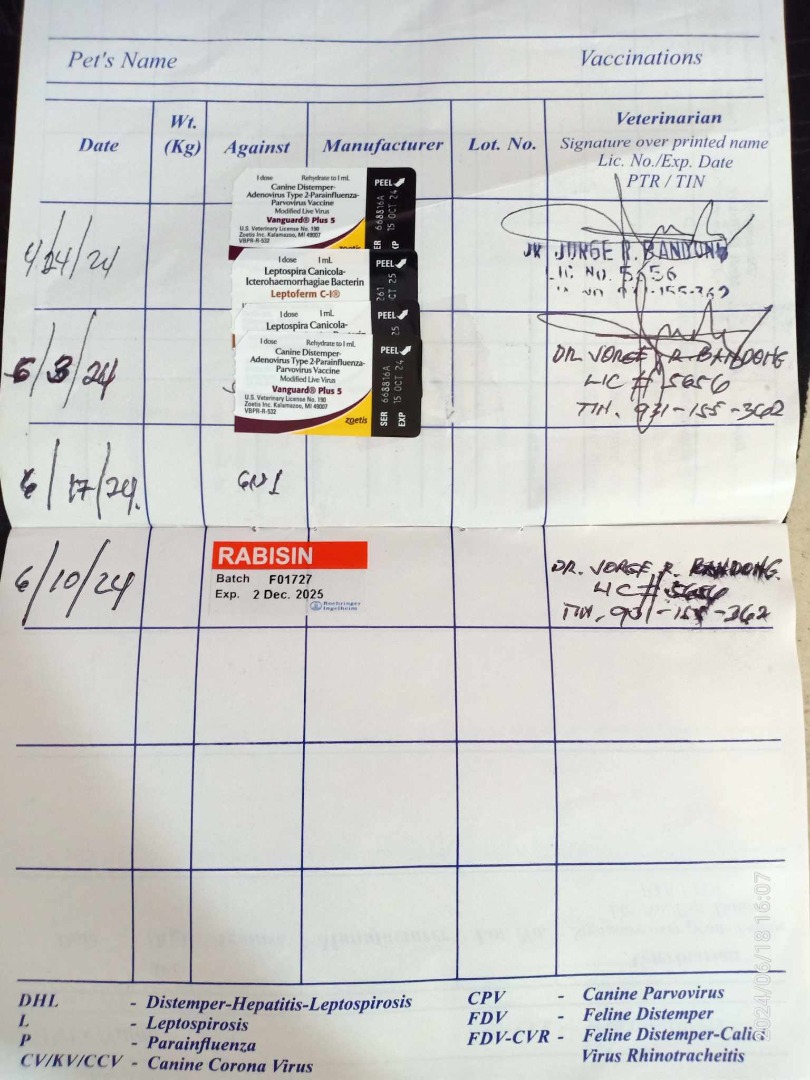 Pet's Name
Vaccinations
Date
Wt.
(Kg)
Against
Manufacturer
Lot. No.
Veterinarian
Signature over printed name
Lic. No./Exp. Date
PTR / TIN
4/24/24
1 dose Rehydrate to 1 mL
Canine Distemper-
Adenovirus Type 2-Parainfluenza-
Parvovirus Vaccine
Modified Live Virus
Vanguard® Plus 5
U.S. Veterinary License No. 190
Zoetis Inc. Kalamazoo, MI 49007
VBPR-R-532
zoetis
PEEL
668816A
15 OCT 24
JORGE R. BANDONG
LIC NO. 5656
931-155-362
1 dose 1 mL
Leptospira Canicola-
Icterohaemorrhagiae Bacterin
Leptoferm C-I®
PEEL
261
CT 25
1 dose 1 mL
Leptospira Canicola-
PEEL
25
5/3/24
1 dose Rehydrate to 1 mL
Canine Distemper-
Adenovirus Type 2-Parainfluenza-
Parvovirus Vaccine
Modified Live Virus
Vanguard® Plus 5
U.S. Veterinary License No. 190
Zoetis Inc. Kalamazoo, MI 49007
VBPR-R-532
zoetis
PEEL
SER 668816A
EXP 15 OCT 24
DR. JORGE R. BANDONG
LIC # 5656
TIN. 931-155-362
6/17/24.
6N1
6/10/24
RABISIN
Batch F01727
Exp. 2 Dec. 2025
Boehringer
Ingelheim
DR. JORGE R. BANDONG.
LIC # 5656
TIN. 931-155-362
DHL - Distemper-Hepatitis-Leptospirosis
L - Leptospirosis
P - Parainfluenza
CV/KV/CCV - Canine Corona Virus
CPV - Canine Parvovirus
FDV - Feline Distemper
FDV-CVR - Feline Distemper-Calici
Virus Rhinotracheitis
2024/06/18 16:07